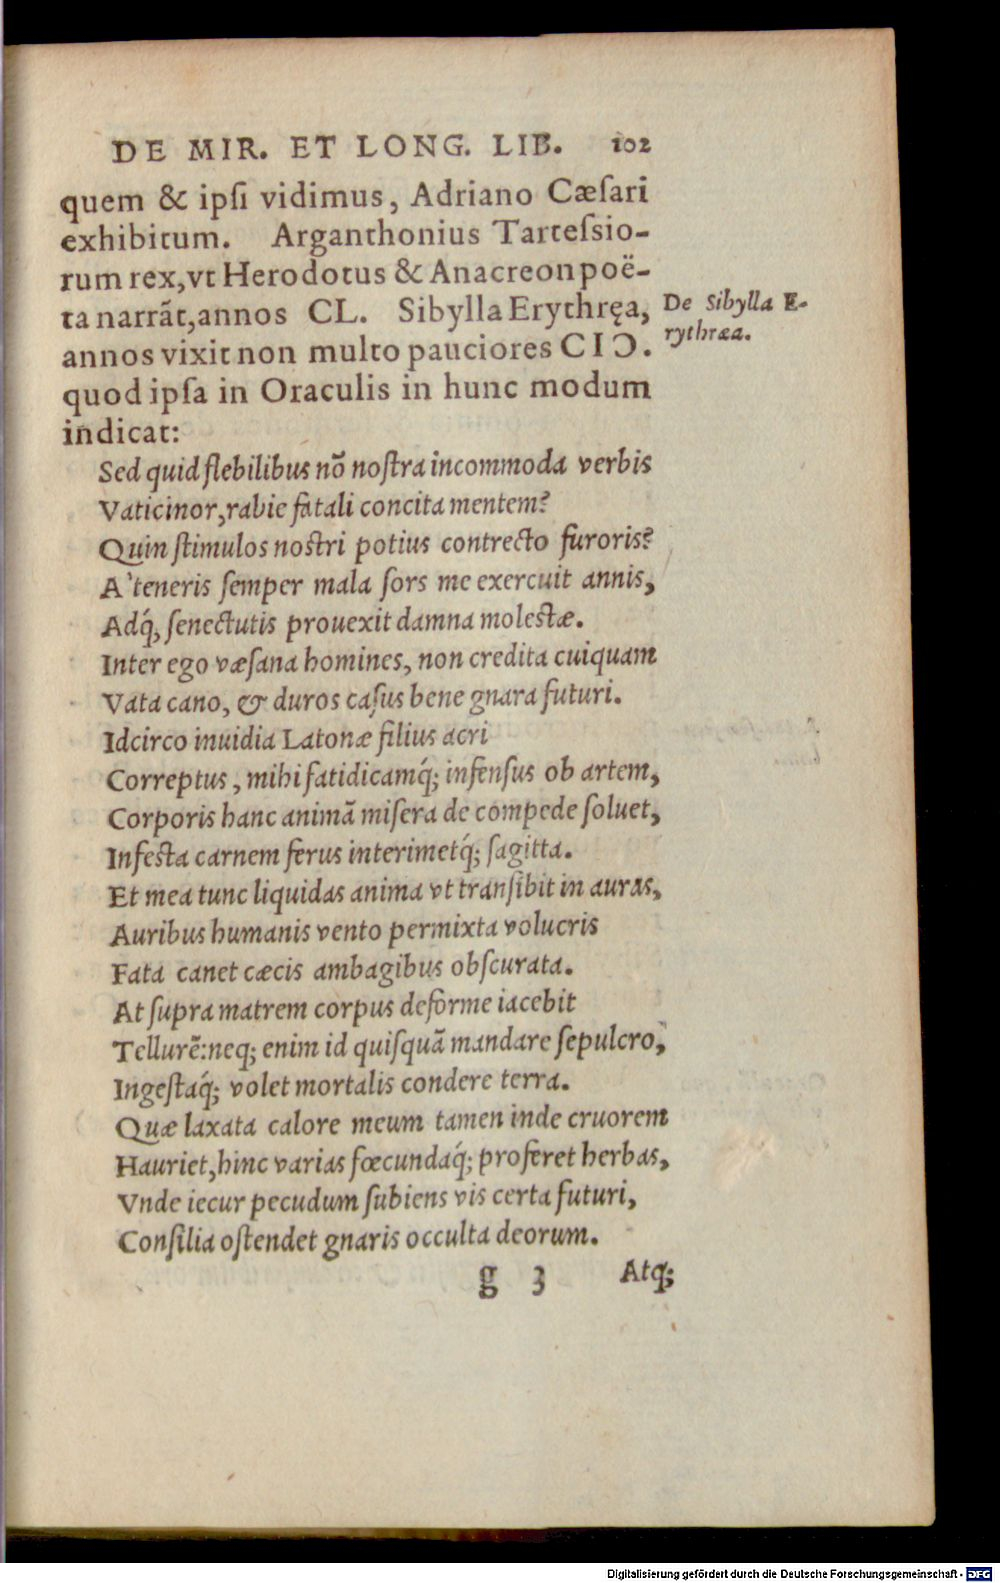 DE MIR. ET LONG. LIB. 102
quem & ipſi vidimus, Adriano Cæſari
exhibitum. Arganthonius Tarteſsio-
rum rex, vt Herodotus & Anacreon poë-
ta narrãt, annos CL. Sibylla Erythręa,
De Sibylla E-
rythræa.
annos vixit non multo pauciores CIƆ.
quod ipſa in Oraculis in hunc modum
indicat:
Sed quid flebilibus nõ noſtra incommoda verbis
Vaticinor, rabie fatali concita mentem?
Quin ſtimulos noſtri potius contrecto furoris?
A' teneris ſemper mala ſors me exercuit annis,
Adq́, ſenectutis prouexit damna moleſtæ.
Inter ego væſana homines, non credita cuiquam
Vata cano, & duros caſus bene gnara futuri.
Idcirco inuidia Latonæ filius acri
Correptus, mihi fatidicamq́; infenſus ob artem,
Corporis hanc animã miſera de compede ſoluet,
Infeſta carnem ferus interimetq́; ſagitta.
Et mea tunc liquidas anima vt tranſibit in auras,
Auribus humanis vento permixta volucris
Fata canet cæcis ambagibus obſcurata.
At ſupra matrem corpus deforme iacebit
Tellurẽ: neq; enim id quiſquã mandare ſepulcro,
Ingeſtaq́; volet mortalis condere terra.
Quæ laxata calore meum tamen inde cruorem
Hauriet, hinc varias fœcundaq́; proferet herbas,
Vnde iecur pecudum ſubiens vis certa futuri,
Conſilia oſtendet gnaris occulta deorum.
g 3 Atq;
Digitalisierung gefördert durch die Deutsche Forschungsgemeinschaft - DFG